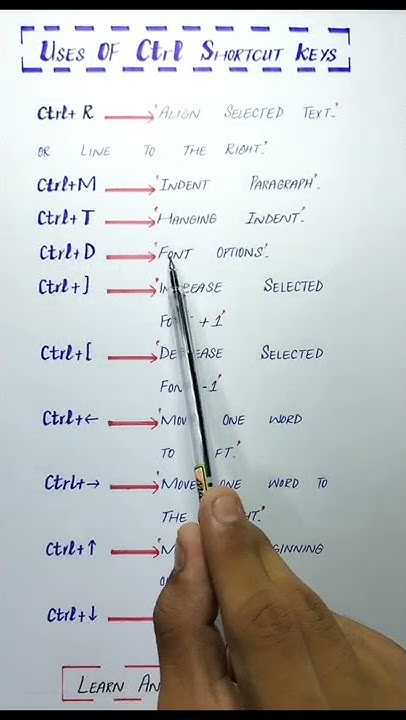 Uses Of Ctrl Shortcut Keys
Ctrl+ R 'Align Selected Text.'
or Line to the Right.'
Ctrl+M 'Indent Paragraph'.
Ctrl+ T 'Hanging Indent.'
Ctrl+ D 'Font options'.
Ctrl+ ] Selected
+ 1'
Ctrl+ [ Selected
-1'
Ctrl+← one word
to
Ctrl+→ 'Move one word to
the
Ctrl+↑
Ctrl+↓
Learn